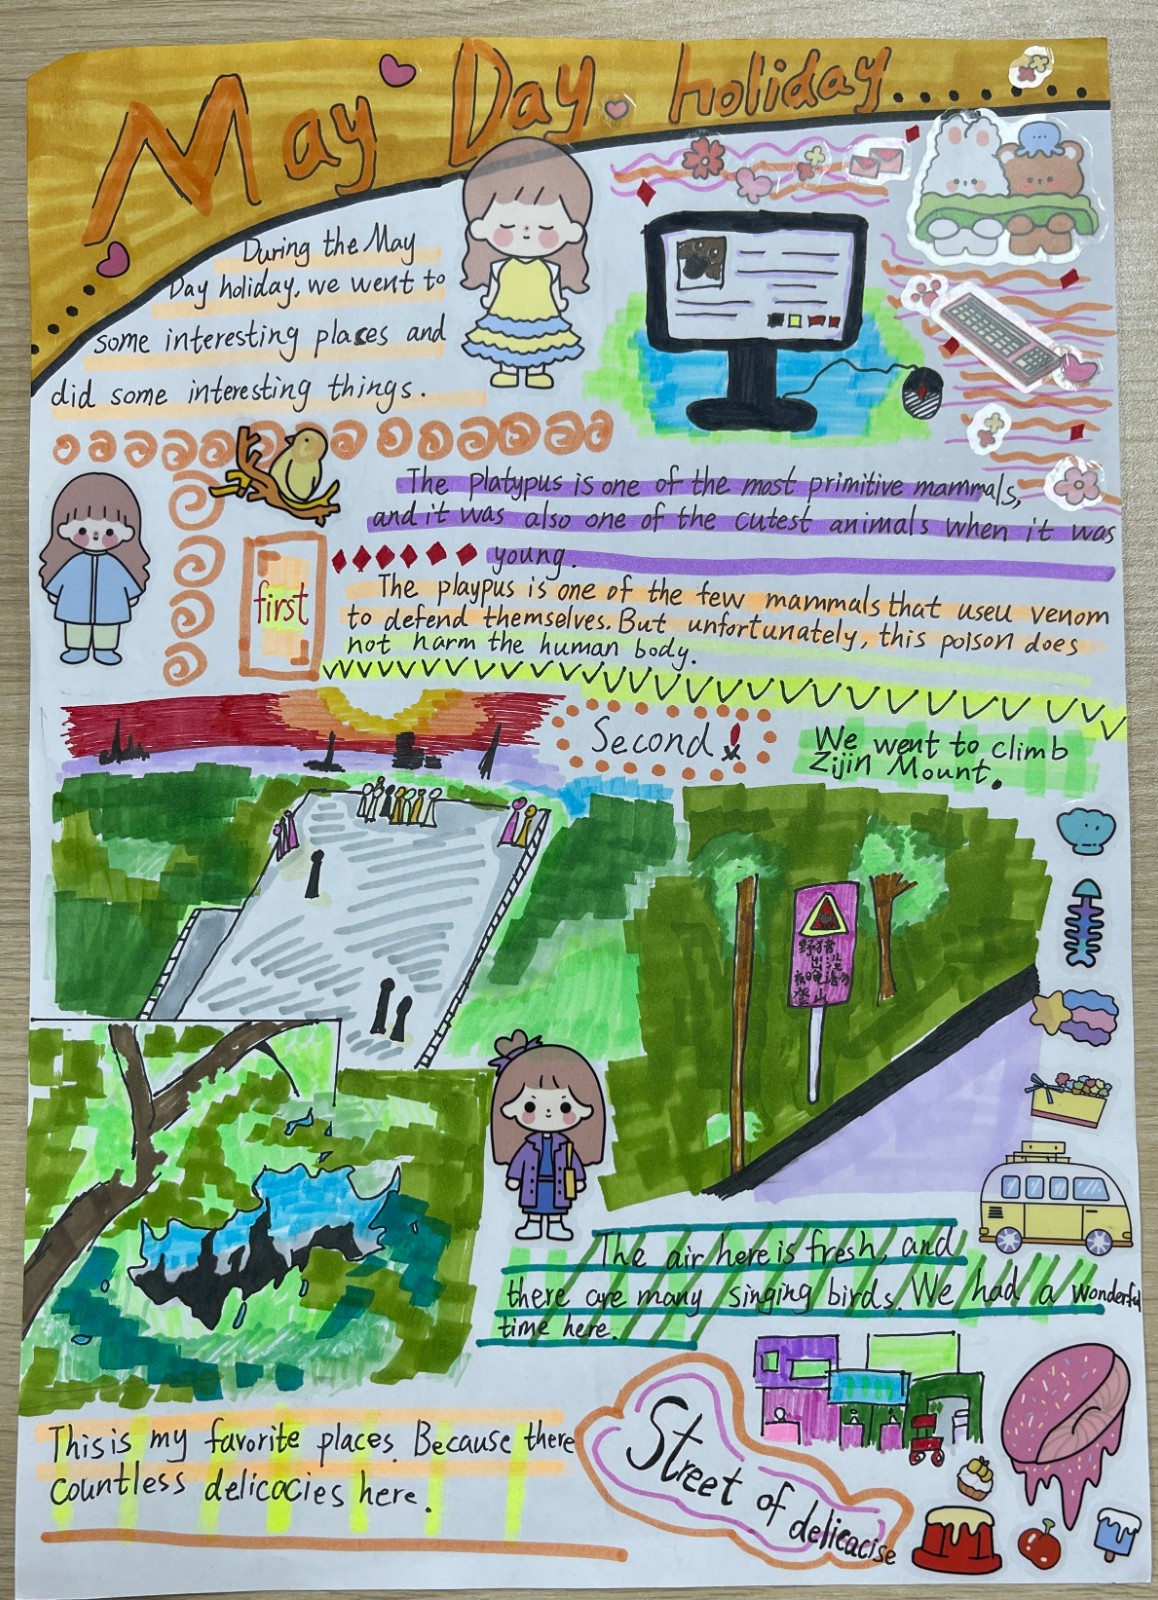 May Day holiday......
During the May
Day holiday, we went to
some interesting places and
did some interesting things.
The platypus is one of the most primitive mammals,
and it was also one of the cutest animals when it was
young.
first
The playpus is one of the few mammals that useu venom
to defend themselves. But unfortunately, this poison does
not harm the human body.
Second!
We went to climb
Zijin Mount.
野猪
出没
夜晚勿
登山
The air here is fresh, and
there are many singing birds. We had a wonderful
time here.
This is my favorite places. Because there
countless delicacies here.
Street of delicacise